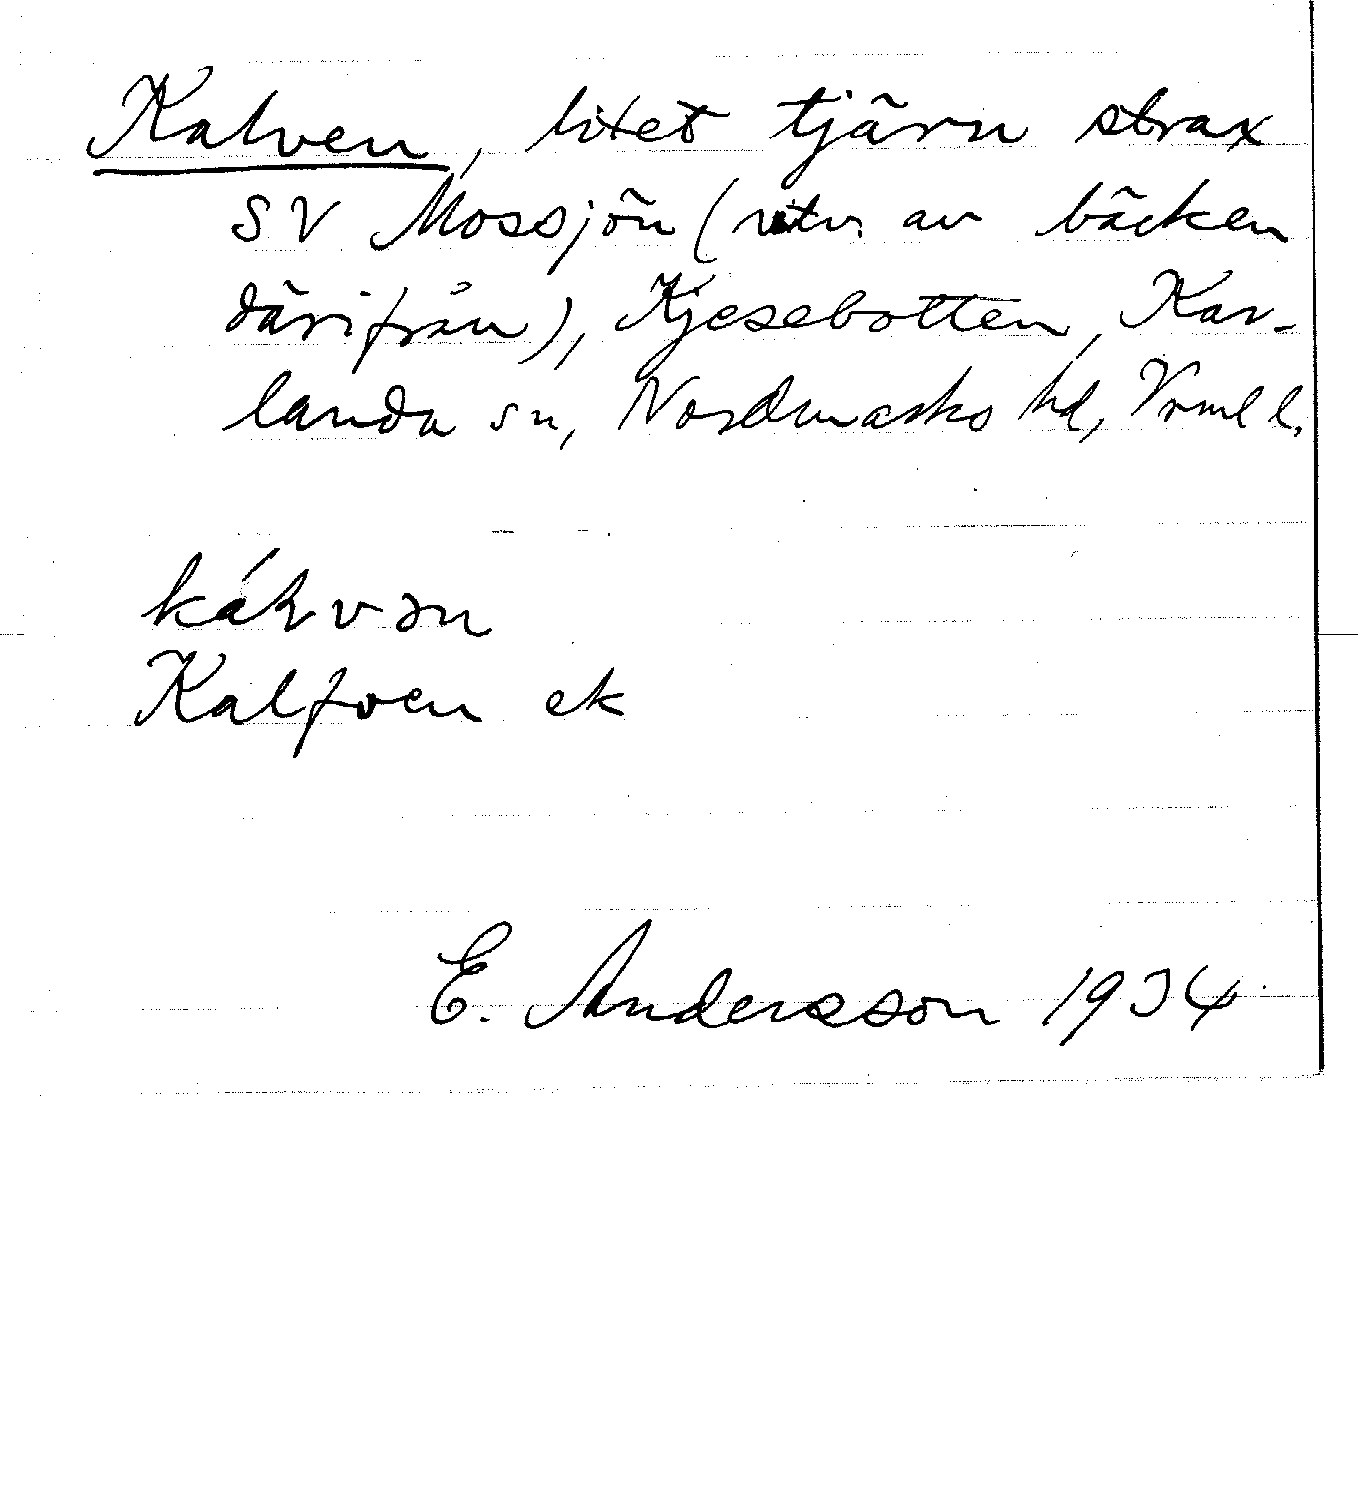 Kalven, litet tjärn strax
SV Mossjön (utv. av bäcken
därifrån), Kjesebotten, Kar-
landa sn, Nordmarks hd, Vrml l.
káɫvən
Kalfven ek
E. Andersson 1934